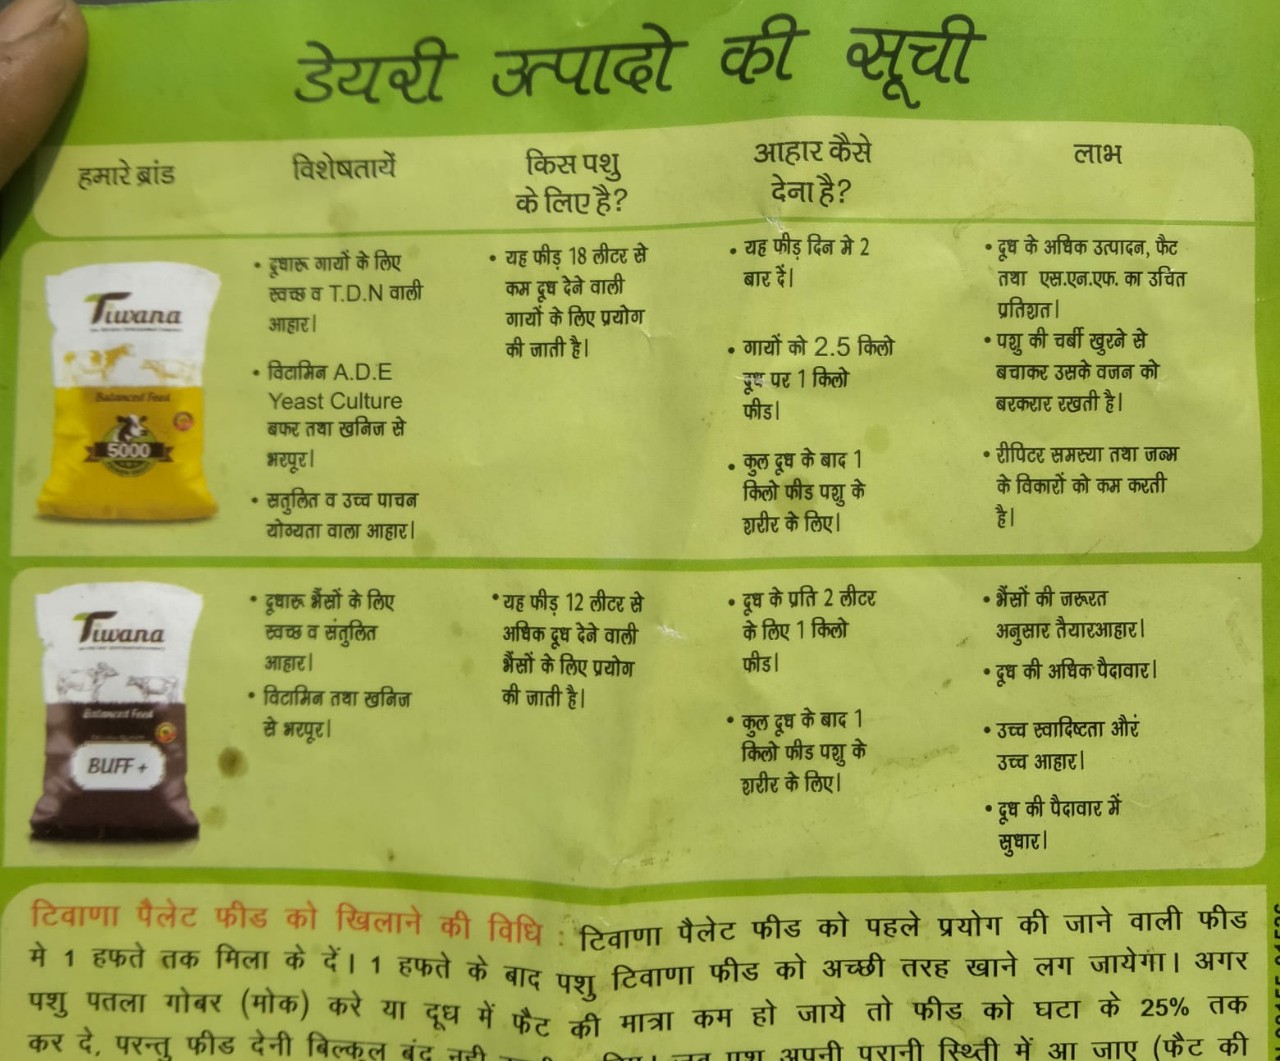 डेयरी उत्पादो की सूची
हमारे ब्रांड
विशेषतायें
किस पशु
के लिए है?
आहार कैसे
देना है?
लाभ
Tiwana
Balanced Feed
5000
• दूधारू गायों के लिए
स्वच्छ व T.D.N वाली
आहार।
• विटामिन A.D.E
Yeast Culture
बफर तथा खनिज से
भरपूर।
• सतुलित व उच्च पाचन
योग्यता वाला आहार।
• यह फीड़ 18 लीटर से
कम दूध देने वाली
गायों के लिए प्रयोग
की जाती है।
• यह फीड़ दिन मे 2
बार दें।
• गायों को 2.5 किलो
दूध पर 1 किलो
फीड।
• कुल दूध के बाद 1
किलो फीड पशु के
शरीर के लिए।
• दूध के अधिक उत्पादन, फैट
तथा एस.एन.एफ. का उचित
प्रतिशत।
• पशु की चर्बी खुरने से
बचाकर उसके वजन को
बरकरार रखती है।
• रीपिटर समस्या तथा जन्म
के विकारों को कम करती
है।
Tiwana
Balanced Feed
BUFF +
• दूधारू भैंसों के लिए
स्वच्छ व संतुलित
आहार।
• विटामिन तथा खनिज
से भरपूर।
• यह फीड़ 12 लीटर से
अधिक दूध देने वाली
भैंसों के लिए प्रयोग
की जाती है।
• दूध के प्रति 2 लीटर
के लिए 1 किलो
फीड।
• कुल दूध के बाद 1
किलो फीड पशु के
शरीर के लिए।
• भैंसों की जरूरत
अनुसार तैयारआहार।
• दूध की अधिक पैदावार।
• उच्च स्वादिष्टता और
उच्च आहार।
• दूध की पैदावार में
सुधार।
टिवाणा पैलेट फीड को खिलाने की विधि : टिवाणा पैलेट फीड को पहले प्रयोग की जाने वाली फीड
मे 1 हफते तक मिला के दें। 1 हफते के बाद पशु टिवाणा फीड को अच्छी तरह खाने लग जायेगा। अगर
पशु पतला गोबर (मोक) करे या दूध में फैट की मात्रा कम हो जाये तो फीड को घटा के 25% तक
कर दे, परन्तु फीड देनी बिल्कुल बंद नही पशु अपनी पुरानी स्थिती में आ जाए (फैट की